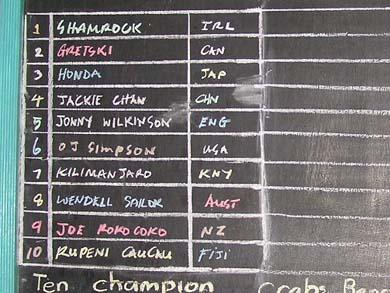 1 SHAMROCK IRL
2 GRETSKI CAN
3 HONDA JAP
4 JACKIE CHAN CHN
5 JONNY WILKINSON ENG
6 OJ SIMPSON USA
7 KILIMANJARO KNY
8 WENDELL SAILOR AUST
9 JOE ROKOCOKO NZ
10 RUPENI CAUCAU FIJI
Ten champion crabs